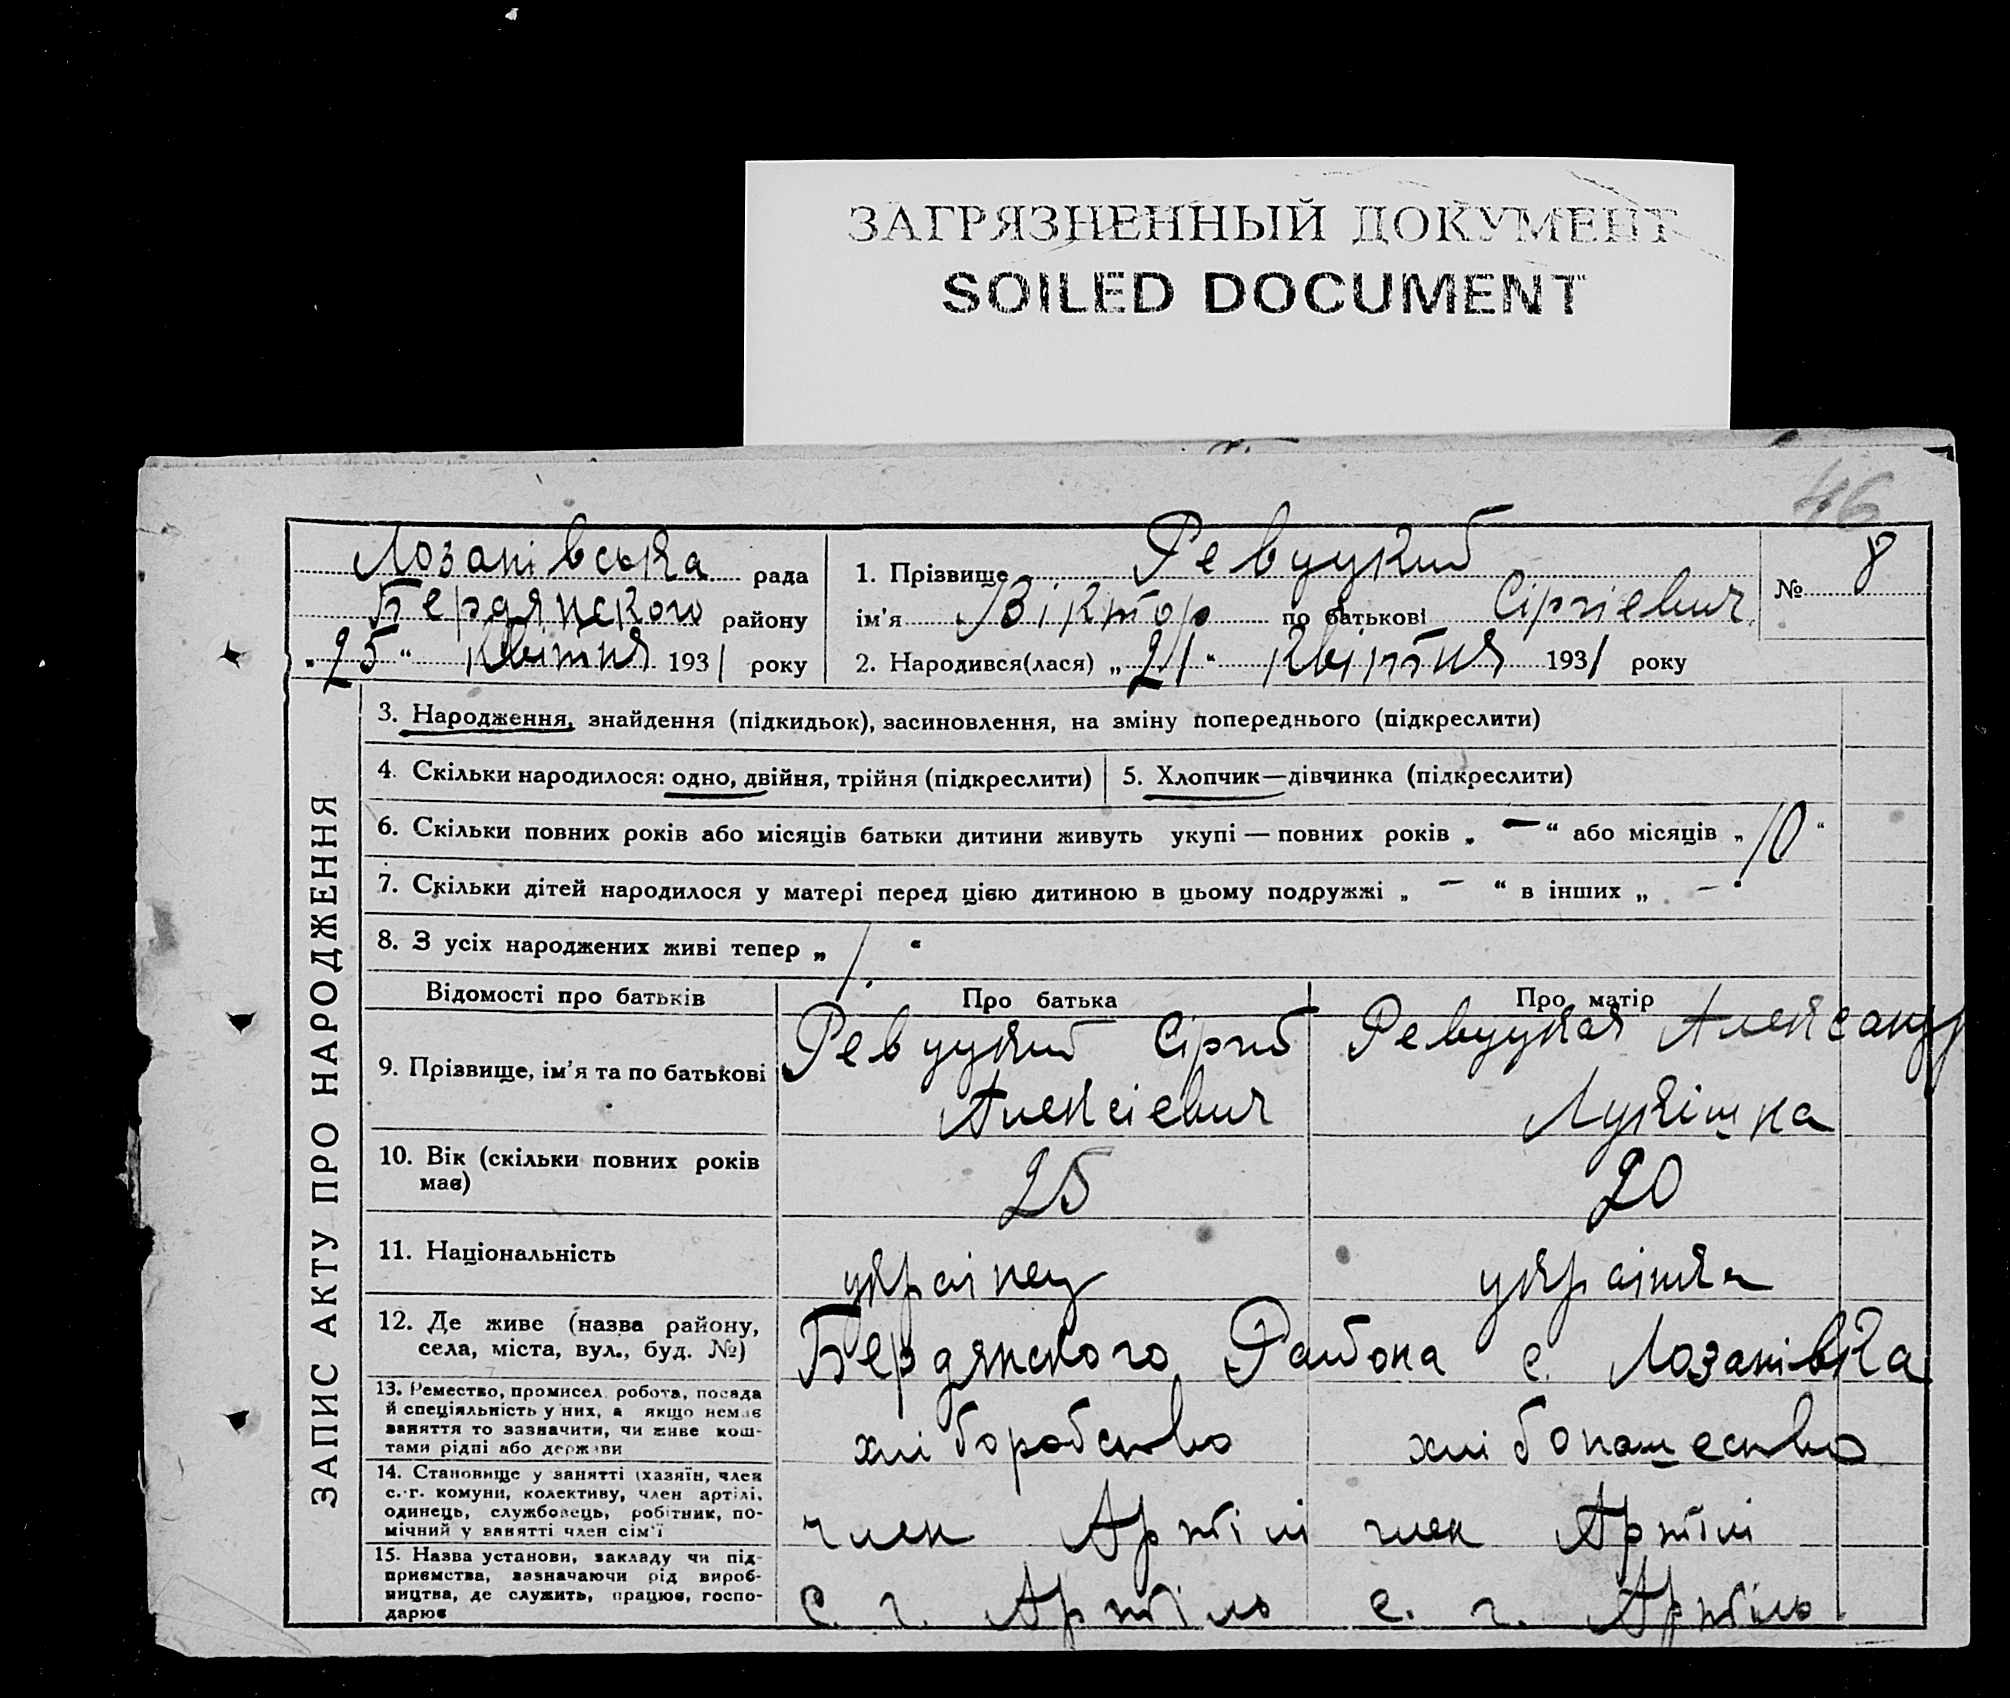 ЗАГРЯЗНЕННЫЙ ДОКУМЕНТ
SOILED DOCUMENT
46
Лозанівська рада
Бердянского району
„25“ Квітня 1931 року
1. Прізвище Ревуцкий
ім'я Віктор по батькові Сіргіевич
№ 8
2. Народився(лася) „21“ Квітня 1931 року
ЗАПИС АКТУ ПРО НАРОДЖЕННЯ
3. Народження, знайдення (підкидьок), засиновлення, на зміну попереднього (підкреслити)
4. Скільки народилося: одно, двійня, трійня (підкреслити)
5. Хлопчик—дівчинка (підкреслити)
6. Скільки повних років або місяців батьки дитини живуть укупі — повних років „ — “ або місяців „ 10 “
7. Скільки дітей народилося у матері перед цією дитиною в цьому подружжі „ — “ в інших „ — “
8. З усіх народжених живі тепер „ 1 “
Відомості про батьків
Про батька
Про матір
9. Прізвище, ім'я та по батькові
Ревуцкий Сіргій
Алексіевич
Ревуцкая Александр
Лукішна
10. Вік (скільки повних років
має)
25
20
11. Національність
українец
українка
12. Де живе (назва району,
села, міста, вул., буд. №)
Бердянского Района с. Лозанівка
13. Ремество, промисел, робота, посада
й спеціяльність у них, а якщо немає
заняття то зазначити, чи живе кош-
тами рідні або держави
хліборобство
хлібопашество
14. Становище у занятті (хазяїн, член
с.-г. комуни, колективу, член артілі,
одинець, службовець, робітник, по-
мічний у занятті член сім'ї
член Артілі
член Артілі
15. Назва установи, закладу чи під-
приємства, зазначаючи рід вироб-
ництва, де служить, працює, госпо-
дарює
с. г. Артіль
с. г. Артіль